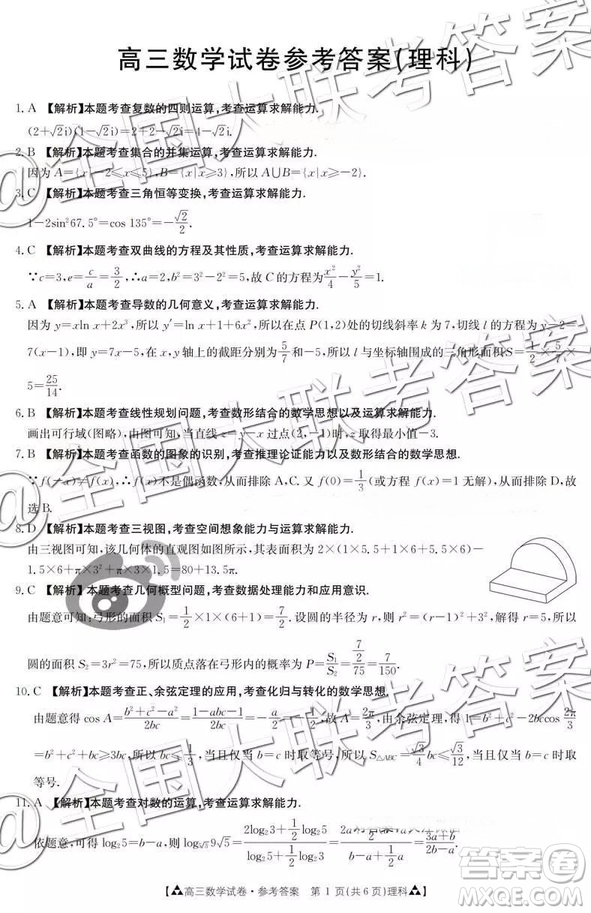 高三数学试卷参考答案(理科)
1. A 【解析】本题考查复数的四则运算,考查运算求解能力.
(2+√2i)(1-√2i)=2+2-√2i=4-√2i.
2. B 【解析】本题考查集合的并集运算,考查运算求解能力.
因为A={x|-2≤x≤5},B={x|x≥3},所以A∪B={x|x≥-2}.
3. C 【解析】本题考查三角恒等变换,考查运算求解能力.
1-2sin²67.5°=cos 135°=-√2/2.
4. C 【解析】本题考查双曲线的方程及其性质,考查运算求解能力.
∵c=3,e=c/a=3/2,∴a=2,b²=3²-2²=5,故C的方程为x²/4-y²/5=1.
5. A 【解析】本题考查导数的几何意义,考查运算求解能力.
因为y=xln x+2x³,所以y′=ln x+1+6x²,所以在点P(1,2)处的切线斜率k=7,切线l的方程为y-2=
7(x-1),即y=7x-5,所以l在x轴、y轴上的截距分别为5/7和-5,所以l与坐标轴围成的三角形面积S=1/2×5/7×
5=25/14.
6. B 【解析】本题考查线性规划问题,考查数形结合的数学思想以及运算求解能力.
画出可行域(图略),由图可知,当直线z=y-x过点(2,-1)时,z取得最小值-3.
7. B 【解析】本题考查函数的图象的识别,考查推理论证能力以及数形结合的数学思想.
∵f(-x)≠f(x),∴f(x)不是偶函数,从而排除A,C.又f(0)=1/3(或f(x)=0无解),从而排除D,故
选B.
8. D 【解析】本题考查三视图,考查空间想象能力与运算求解能力.
由三视图可知,该几何体的直观图如图所示,故该几何体的体积为8×6×1+4×8×1+
1.5×6+π×3²+π×3×1.5=80+13.5π.
9. C 【解析】本题考查几何概型问题,考查数据处理能力和应用意识.
由题意可知:弓形面积S₁=1/2×1×(6+1)=7/2.设圆的半径为r,则r²=(r-1)²+3²,解得r=5,所以
圆的面积S₂=3r²=75,所以所求概率为P=S₁/S₂=7/2/75=7/150.
10. C 【解析】本题考查正、余弦定理的应用,考查化归与转化的数学思想.
由题意得cos A=b²+c²-a²/2bc=1-abc/2bc=-a/2,故A=2π/3,由余弦定理可得1=b²+c²-2bccos2π/3
=b²+c²+bc≥3bc,所以bc≤1/3,当且仅当b=c时取等号,所以S△ABC≤√3/12,当且仅当b=c时取
等号.
11. A 【解析】本题考查对数的运算,考查运算求解能力.
依题意,可得log₂5=b-a,则log₅9√5=2log₂3+1/2log₂5/log₂5=2a+b-a/2/b-a=3a+b/2(b-a).
▲高三数学试卷·参考答案 第 1 页(共 6 页)理科▲
@全国大联考答案
@全国大联考答案
答案圈
MXQE.COM